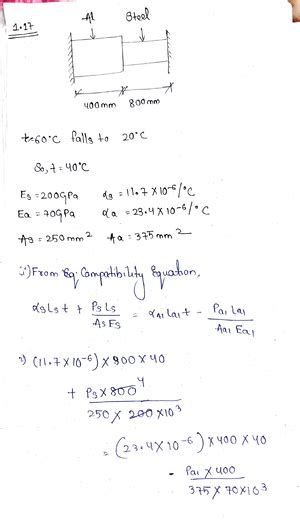 1.17
Al Steel
400mm 800mm
t=60°C falls to 20°C
So, t = 40°C
Es = 200GPa αs = 11.7 X 10-6/°C
Ea = 70GPa αa = 23.4 X 10-6/°C
As = 250 mm2 Aa = 375 mm2
From Eq. Compatibility Equation,
αsLst + PsLs/AsEs = αAl LAl t - PAl LAl/AAl EAl
(11.7 X 10-6) X 800 X 40
+ Ps X 800 4/250 X 200 X 103
= (23.4 X 10-6) X 400 X 40
- PAl X 400/375 X 70 X 103